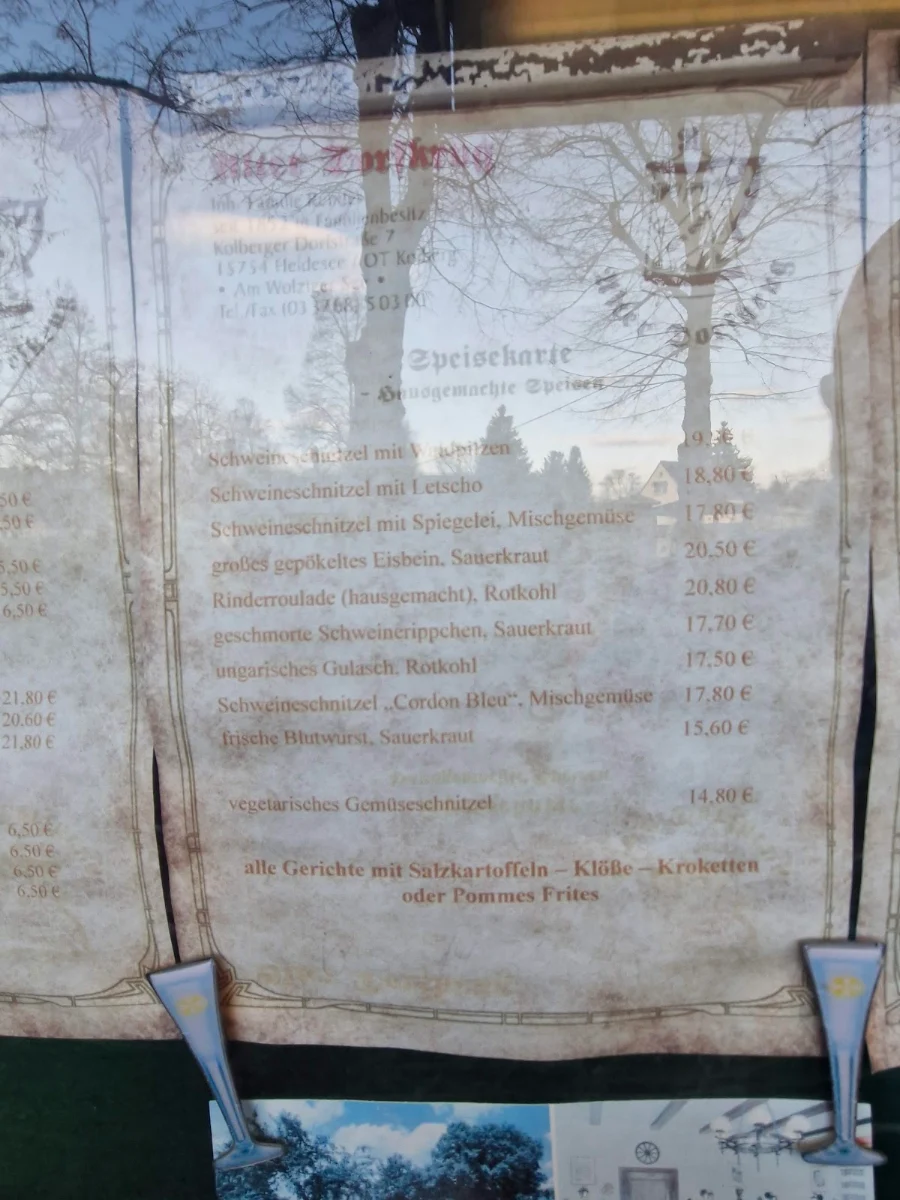 Alter Dorfkrug
Inh. Familie
seit Familienbesitz
Kolberger Dorfstraße 7
15754 Heidesee / OT Kolberg
• Am Wolziger See •
Tel./Fax (03 3768) 5 03 00
Speisekarte
- Hausgemachte Speisen
Schweineschnitzel mit Waldpilzen
Schweineschnitzel mit Letscho 18,80 €
Schweineschnitzel mit Spiegelei, Mischgemüse 17,80 €
großes gepökeltes Eisbein, Sauerkraut 20,50 €
Rinderroulade (hausgemacht), Rotkohl 20,80 €
geschmorte Schweinerippchen, Sauerkraut 17,70 €
ungarisches Gulasch, Rotkohl 17,50 €
Schweineschnitzel „Cordon Bleu“, Mischgemüse 17,80 €
frische Blutwurst, Sauerkraut 15,60 €
vegetarisches Gemüseschnitzel 14,80 €
alle Gerichte mit Salzkartoffeln – Klöße – Kroketten
oder Pommes Frites
50 €
50 €
5,50 €
5,50 €
6,50 €
21,80 €
20,60 €
21,80 €
6,50 €
6,50 €
6,50 €
6,50 €